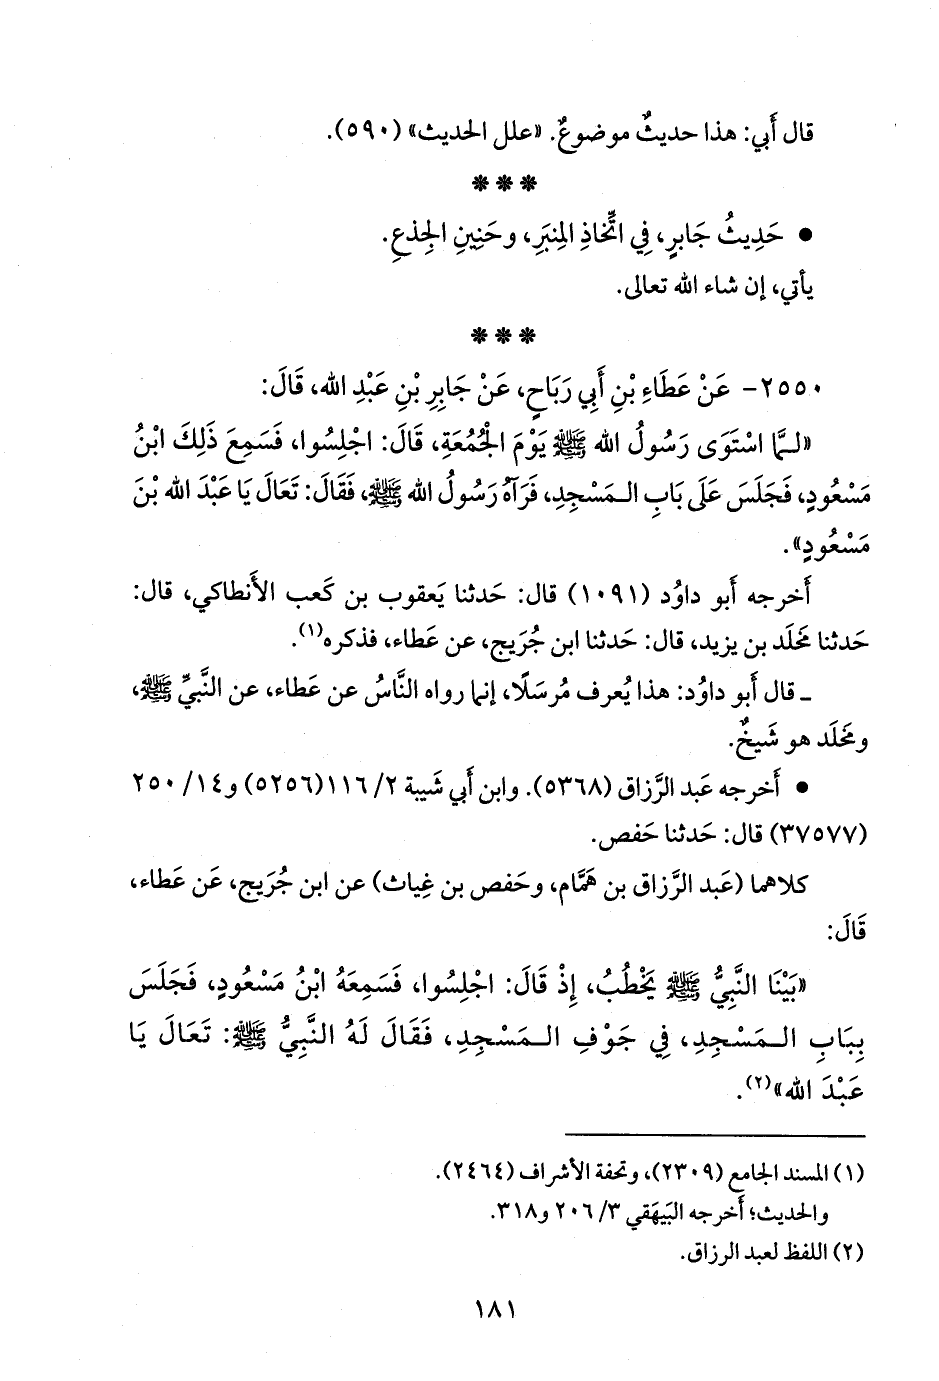 قال أَبي: هذا حديثٌ موضوعٌ. «علل الحديث» (٥٩٠).
* * *
• حَدِيثُ جَابِرٍ، فِي اتِّخَاذِ المِنبَرِ، وحَنِينِ الجِذعِ.
يأتي، إن شاء الله تعالى.
* * *
٢٥٥٠- عَنْ عَطَاءِ بْنِ أَبِي رَبَاحٍ، عَنْ جَابِرِ بْنِ عَبْدِ الله، قَالَ:
«لـمَّا اسْتَوَى رَسُولُ الله ﷺ يَوْمَ الْجُمُعَةِ، قَالَ: اجْلِسُوا، فَسَمِعَ ذَلِكَ ابْنُ
مَسْعُودٍ، فَجَلَسَ عَلَى بَابِ الـمَسْجِدِ، فَرَآهُ رَسُولُ الله ﷺ، فَقَالَ: تَعَالَ يَا عَبْدَ الله بْنَ
مَسْعُودٍ».
أَخرجه أَبو داوُد (١٠٩١) قال: حَدثنا يَعقوب بن كَعب الأَنطاكي، قال:
حَدثنا مَخلَد بن يزيد، قال: حَدثنا ابن جُرَيج، عن عَطاء، فذكره(١).
ـ قال أَبو داوُد: هذا يُعرف مُرسَلًا، إنما رواه النَّاسُ عن عَطاء، عن النَّبيِّ ﷺ،
ومَخلَد هو شَيخٌ.
• أَخرجه عَبد الرَّزاق (٥٣٦٨). وابن أَبي شَيبة ٢/ ١١٦(٥٢٥٦) و١٤/ ٢٥٠
(٣٧٥٧٧) قال: حَدثنا حَفص.
كلاهما (عَبد الرَّزاق بن هَمَّام، وحَفص بن غِياث) عن ابن جُرَيج، عَن عَطاء،
قَالَ:
«بَيْنَا النَّبِيُّ ﷺ يَخْطُبُ، إِذْ قَالَ: اجْلِسُوا، فَسَمِعَهُ ابْنُ مَسْعُودٍ، فَجَلَسَ
بِبَابِ الـمَسْجِدِ، فِي جَوْفِ الـمَسْجِدِ، فَقَالَ لَهُ النَّبِيُّ ﷺ: تَعَالَ يَا
عَبْدَ الله»(٢).
(١) المسند الجامع (٢٣٠٩)، وتحفة الأشراف (٢٤٦٤).
والحديث؛ أَخرجه البَيهَقي ٣/ ٢٠٦ و٣١٨.
(٢) اللفظ لعبد الرزاق.
١٨١